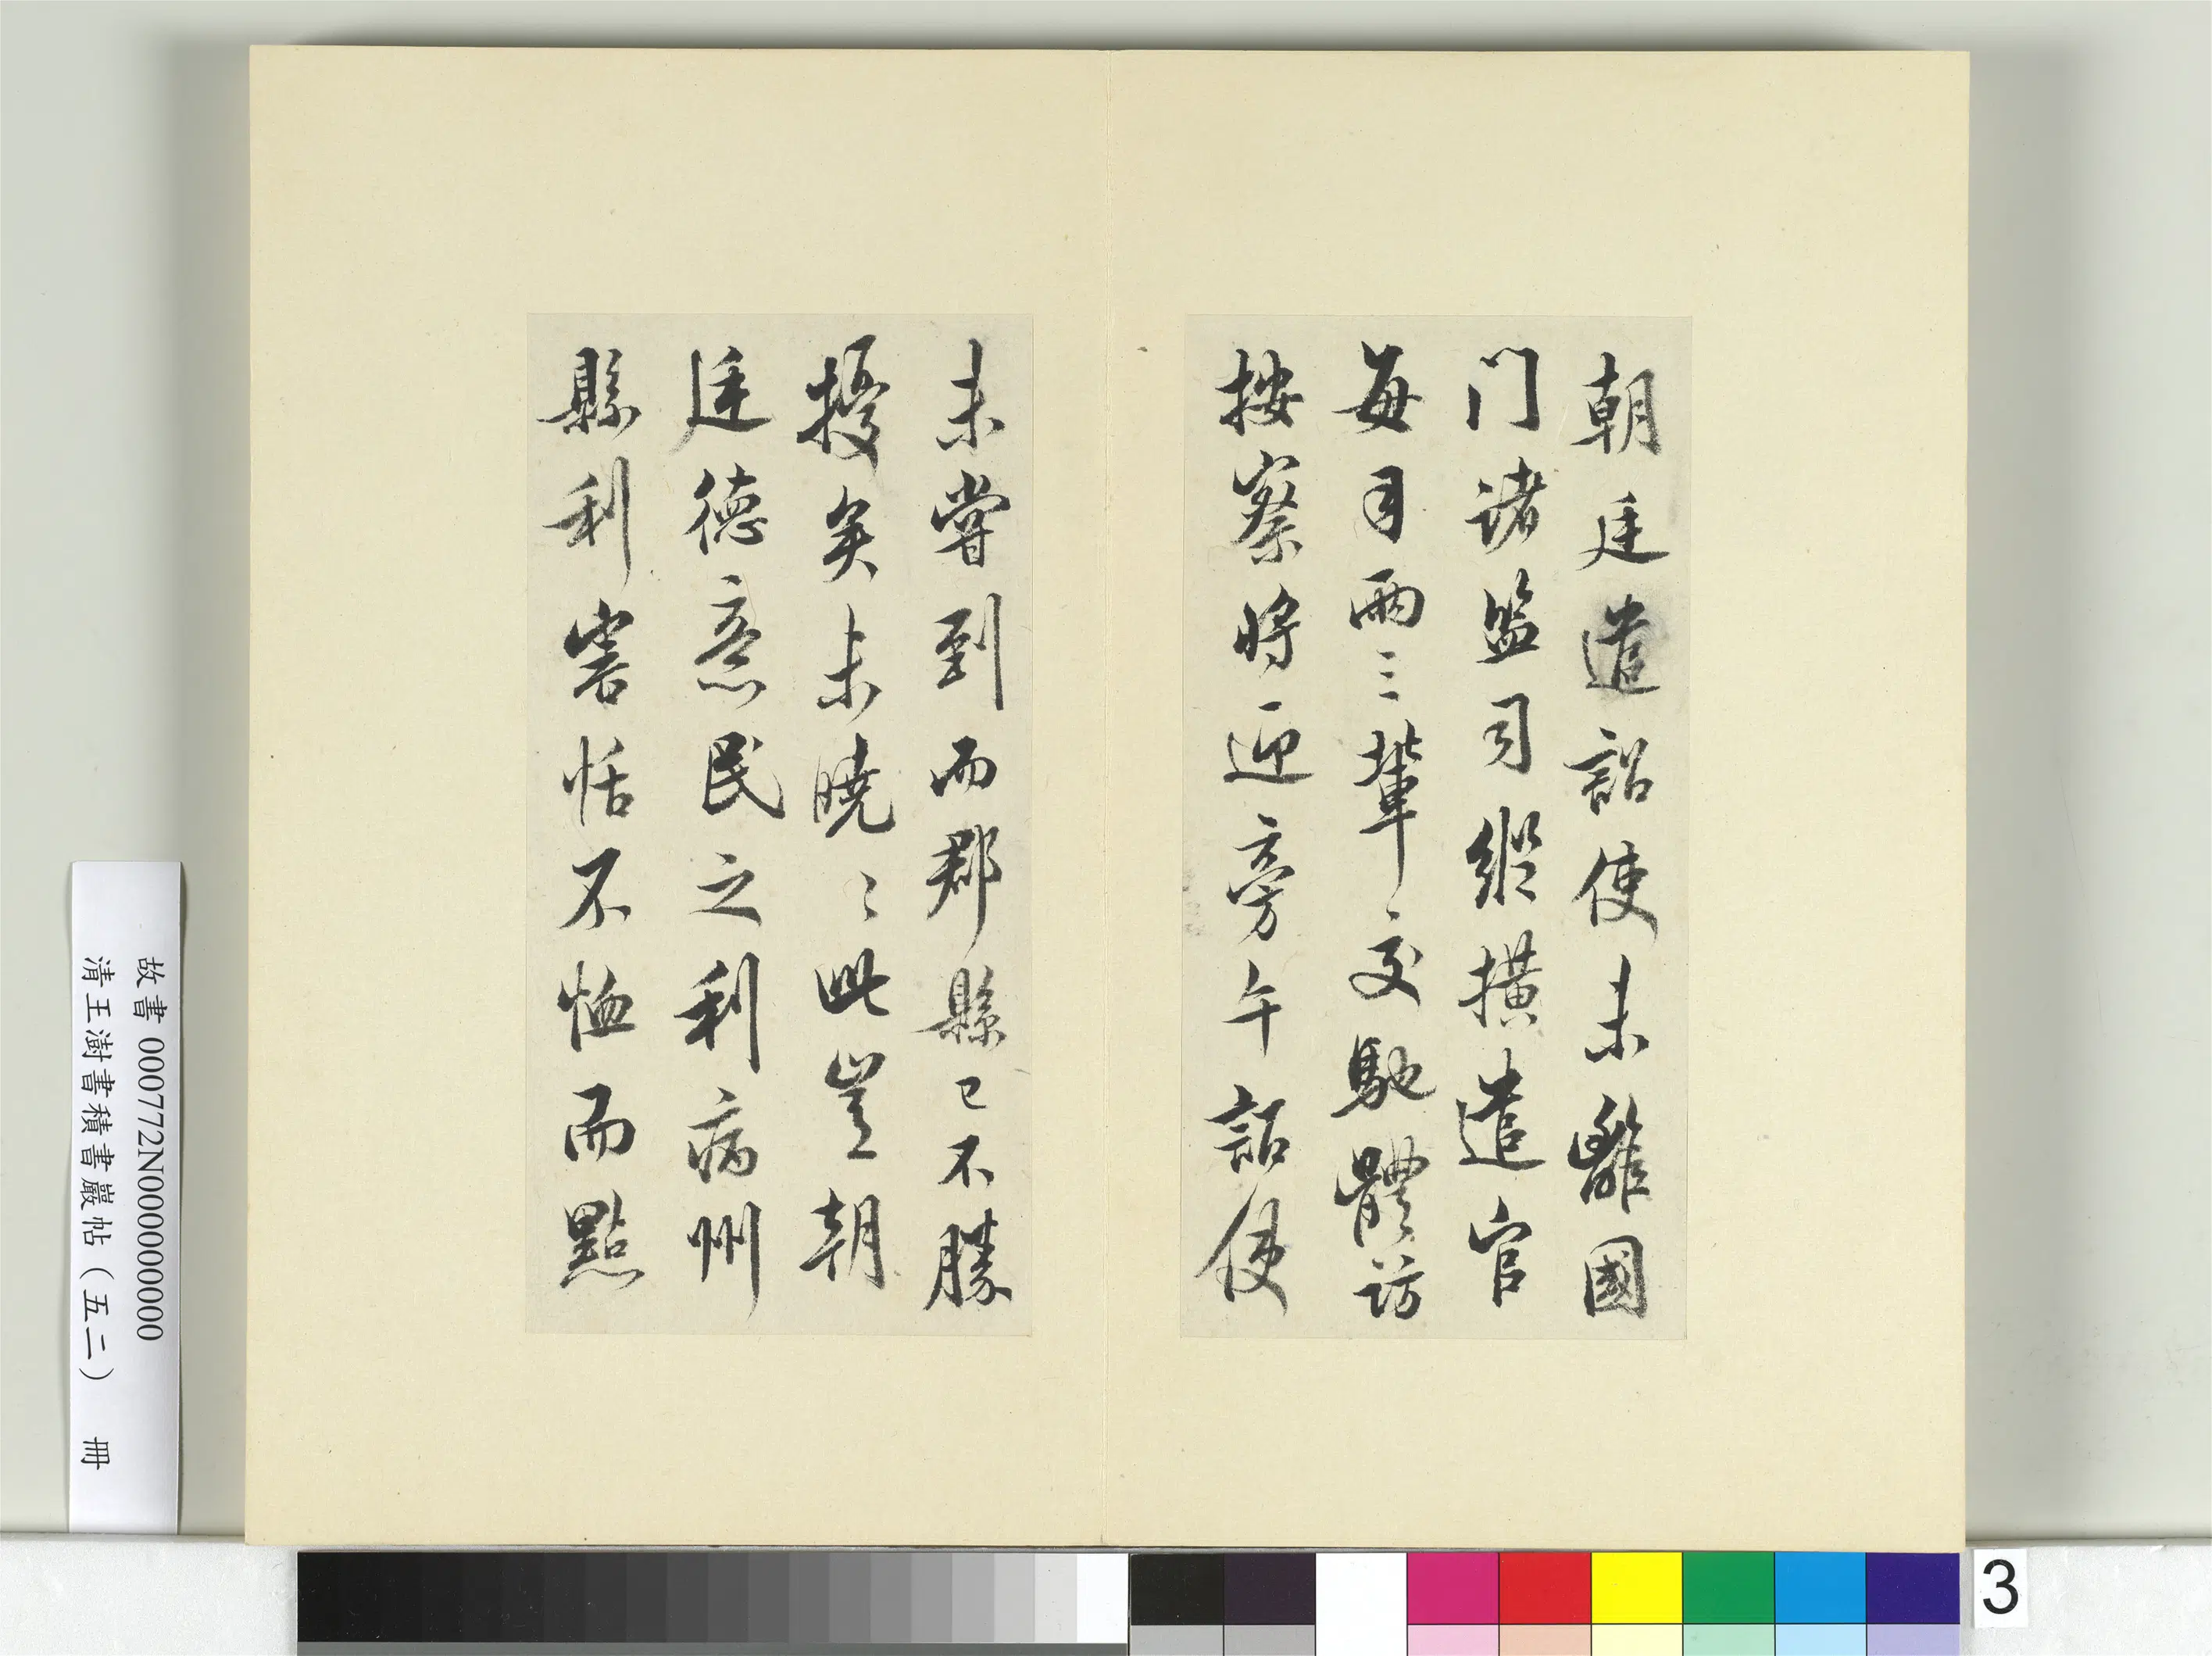 朝廷遣詔使未離國
门諸監司縱橫遣官
每司兩三輩交馳體訪
按察將迎旁午詔使
未嘗到而郡縣已不勝
擾矣未曉〻此豈朝
廷德意民之利病州
縣利害恬不恤而點
故書 000772N000000000
清王澍書積書巖帖（五二） 冊
3